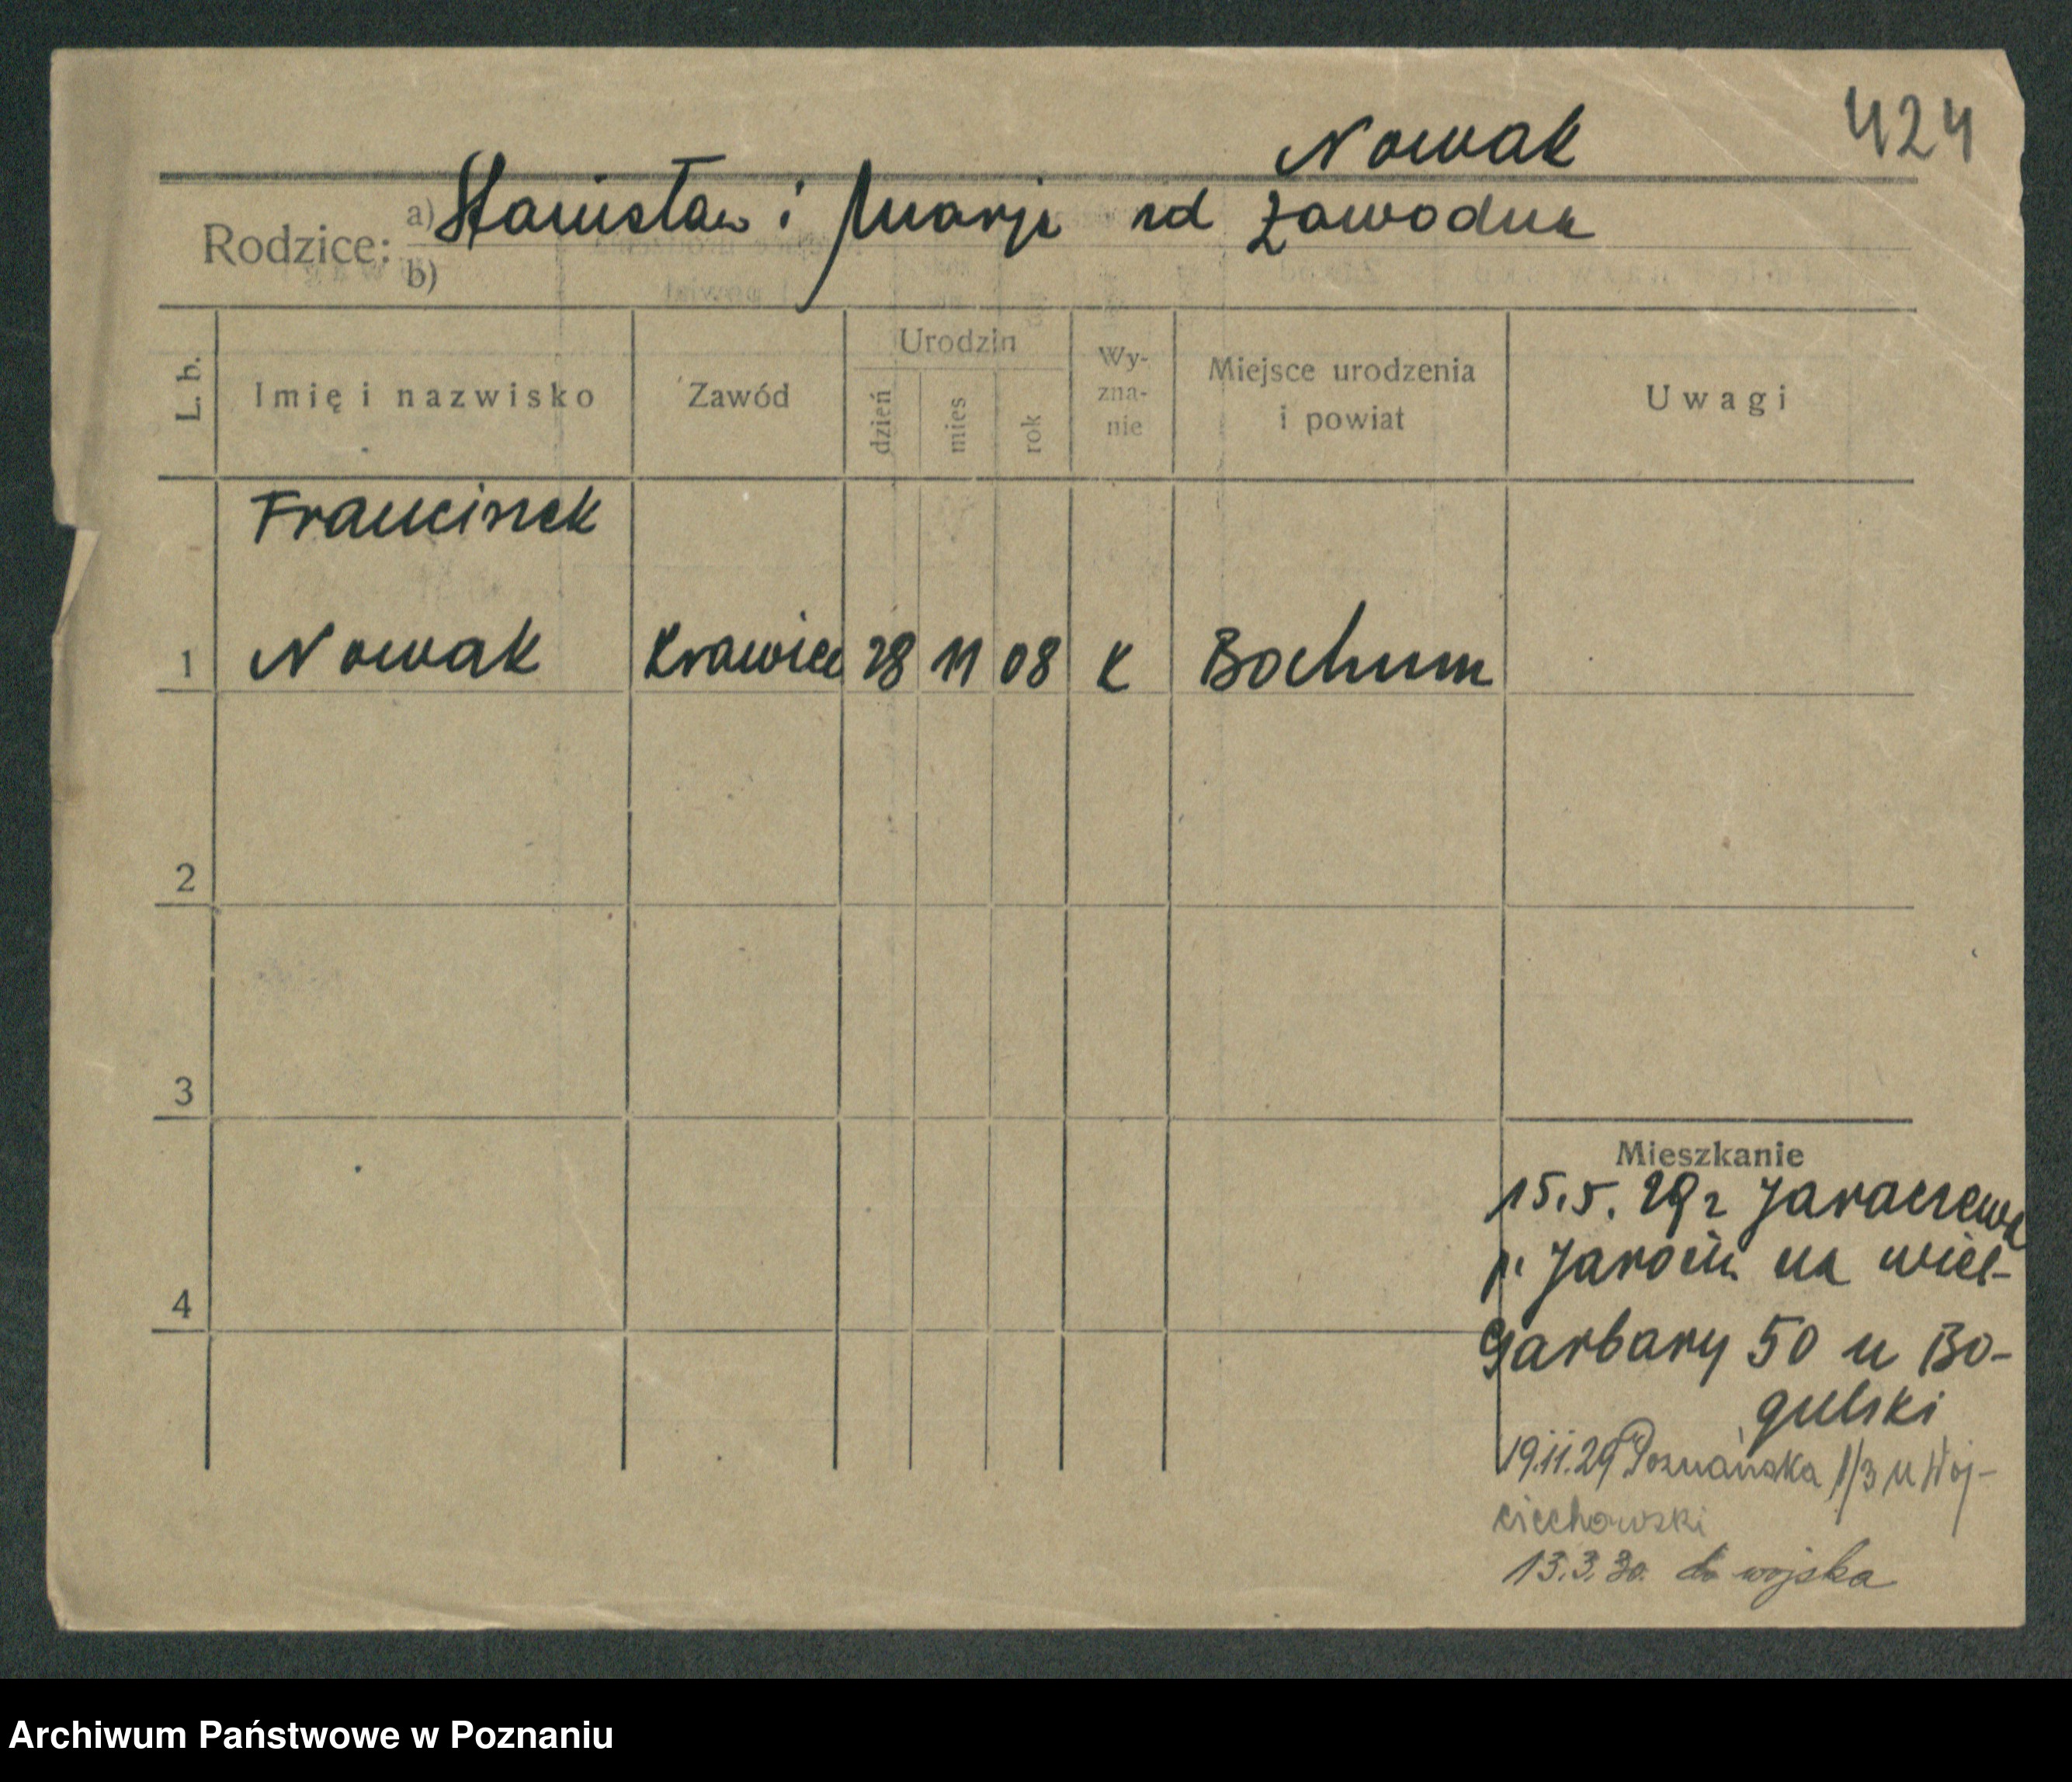 424
Nowak
Rodzice: a) Stanisław i Marja rd Zawodna
b)
L. b.
Imię i nazwisko
Zawód
Urodzin
dzień
mies
rok
Wy-
zna-
nie
Miejsce urodzenia
i powiat
Uwagi
Franciszek
1 Nowak Krawiec 28 11 08 K Bochum
2
3
4
Mieszkanie
15.5.29 z Jaraczewa
p. Jarocin na wiel-
Garbary 50 u Bo-
gulski
19.11.29 Poznańska 1/3 u Woj-
ciechowski
13.3.30. do wojska
Archiwum Państwowe w Poznaniu